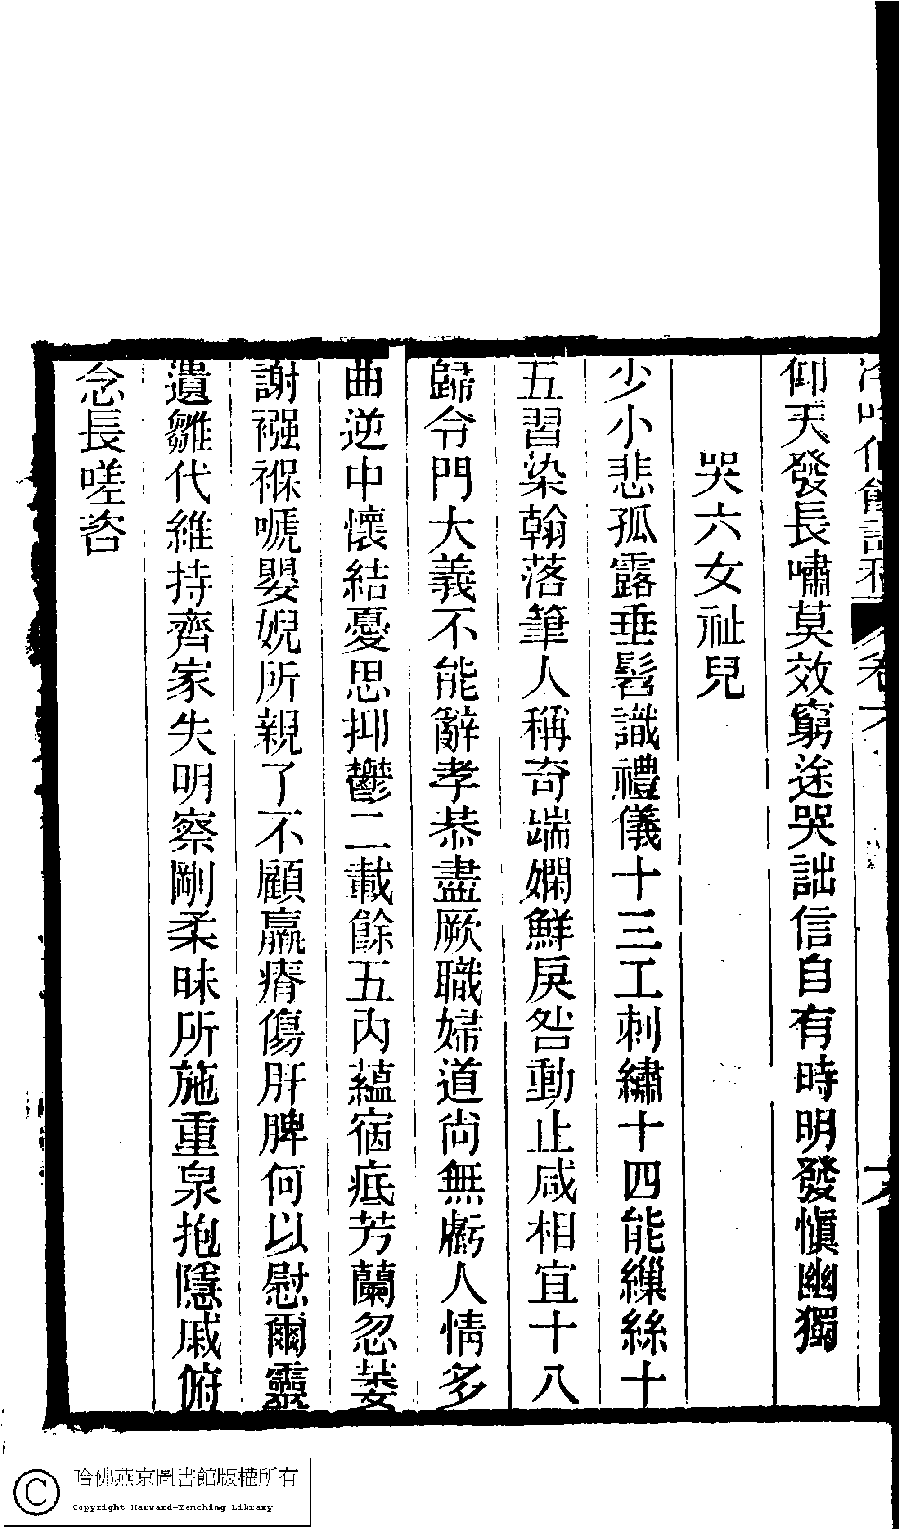 仰天發長嘯莫效窮途哭詘信自有時明發愼幽獨
哭六女祉兒
少小悲孤露垂髫識禮儀十三工刺繡十四能繅絲十
五習染翰落筆人稱奇端嫻鮮戾咎動止咸相宜十八
歸令門大義不能辭孝恭盡厥職婦道尚無虧人情多
曲逆中懷結憂思抑鬱二載餘五內蘊宿疷芳蘭忽萎
謝襁褓嗁嬰婗所親了不顧羸瘠傷肝脾何以慰爾靈
遺雛代維持齊家失明察剛柔昧所施重泉抱隱戚俯
念長嗟咨
卷六
哈佛燕京圖書館版權所有
Copyright Harvard-Yenching Library